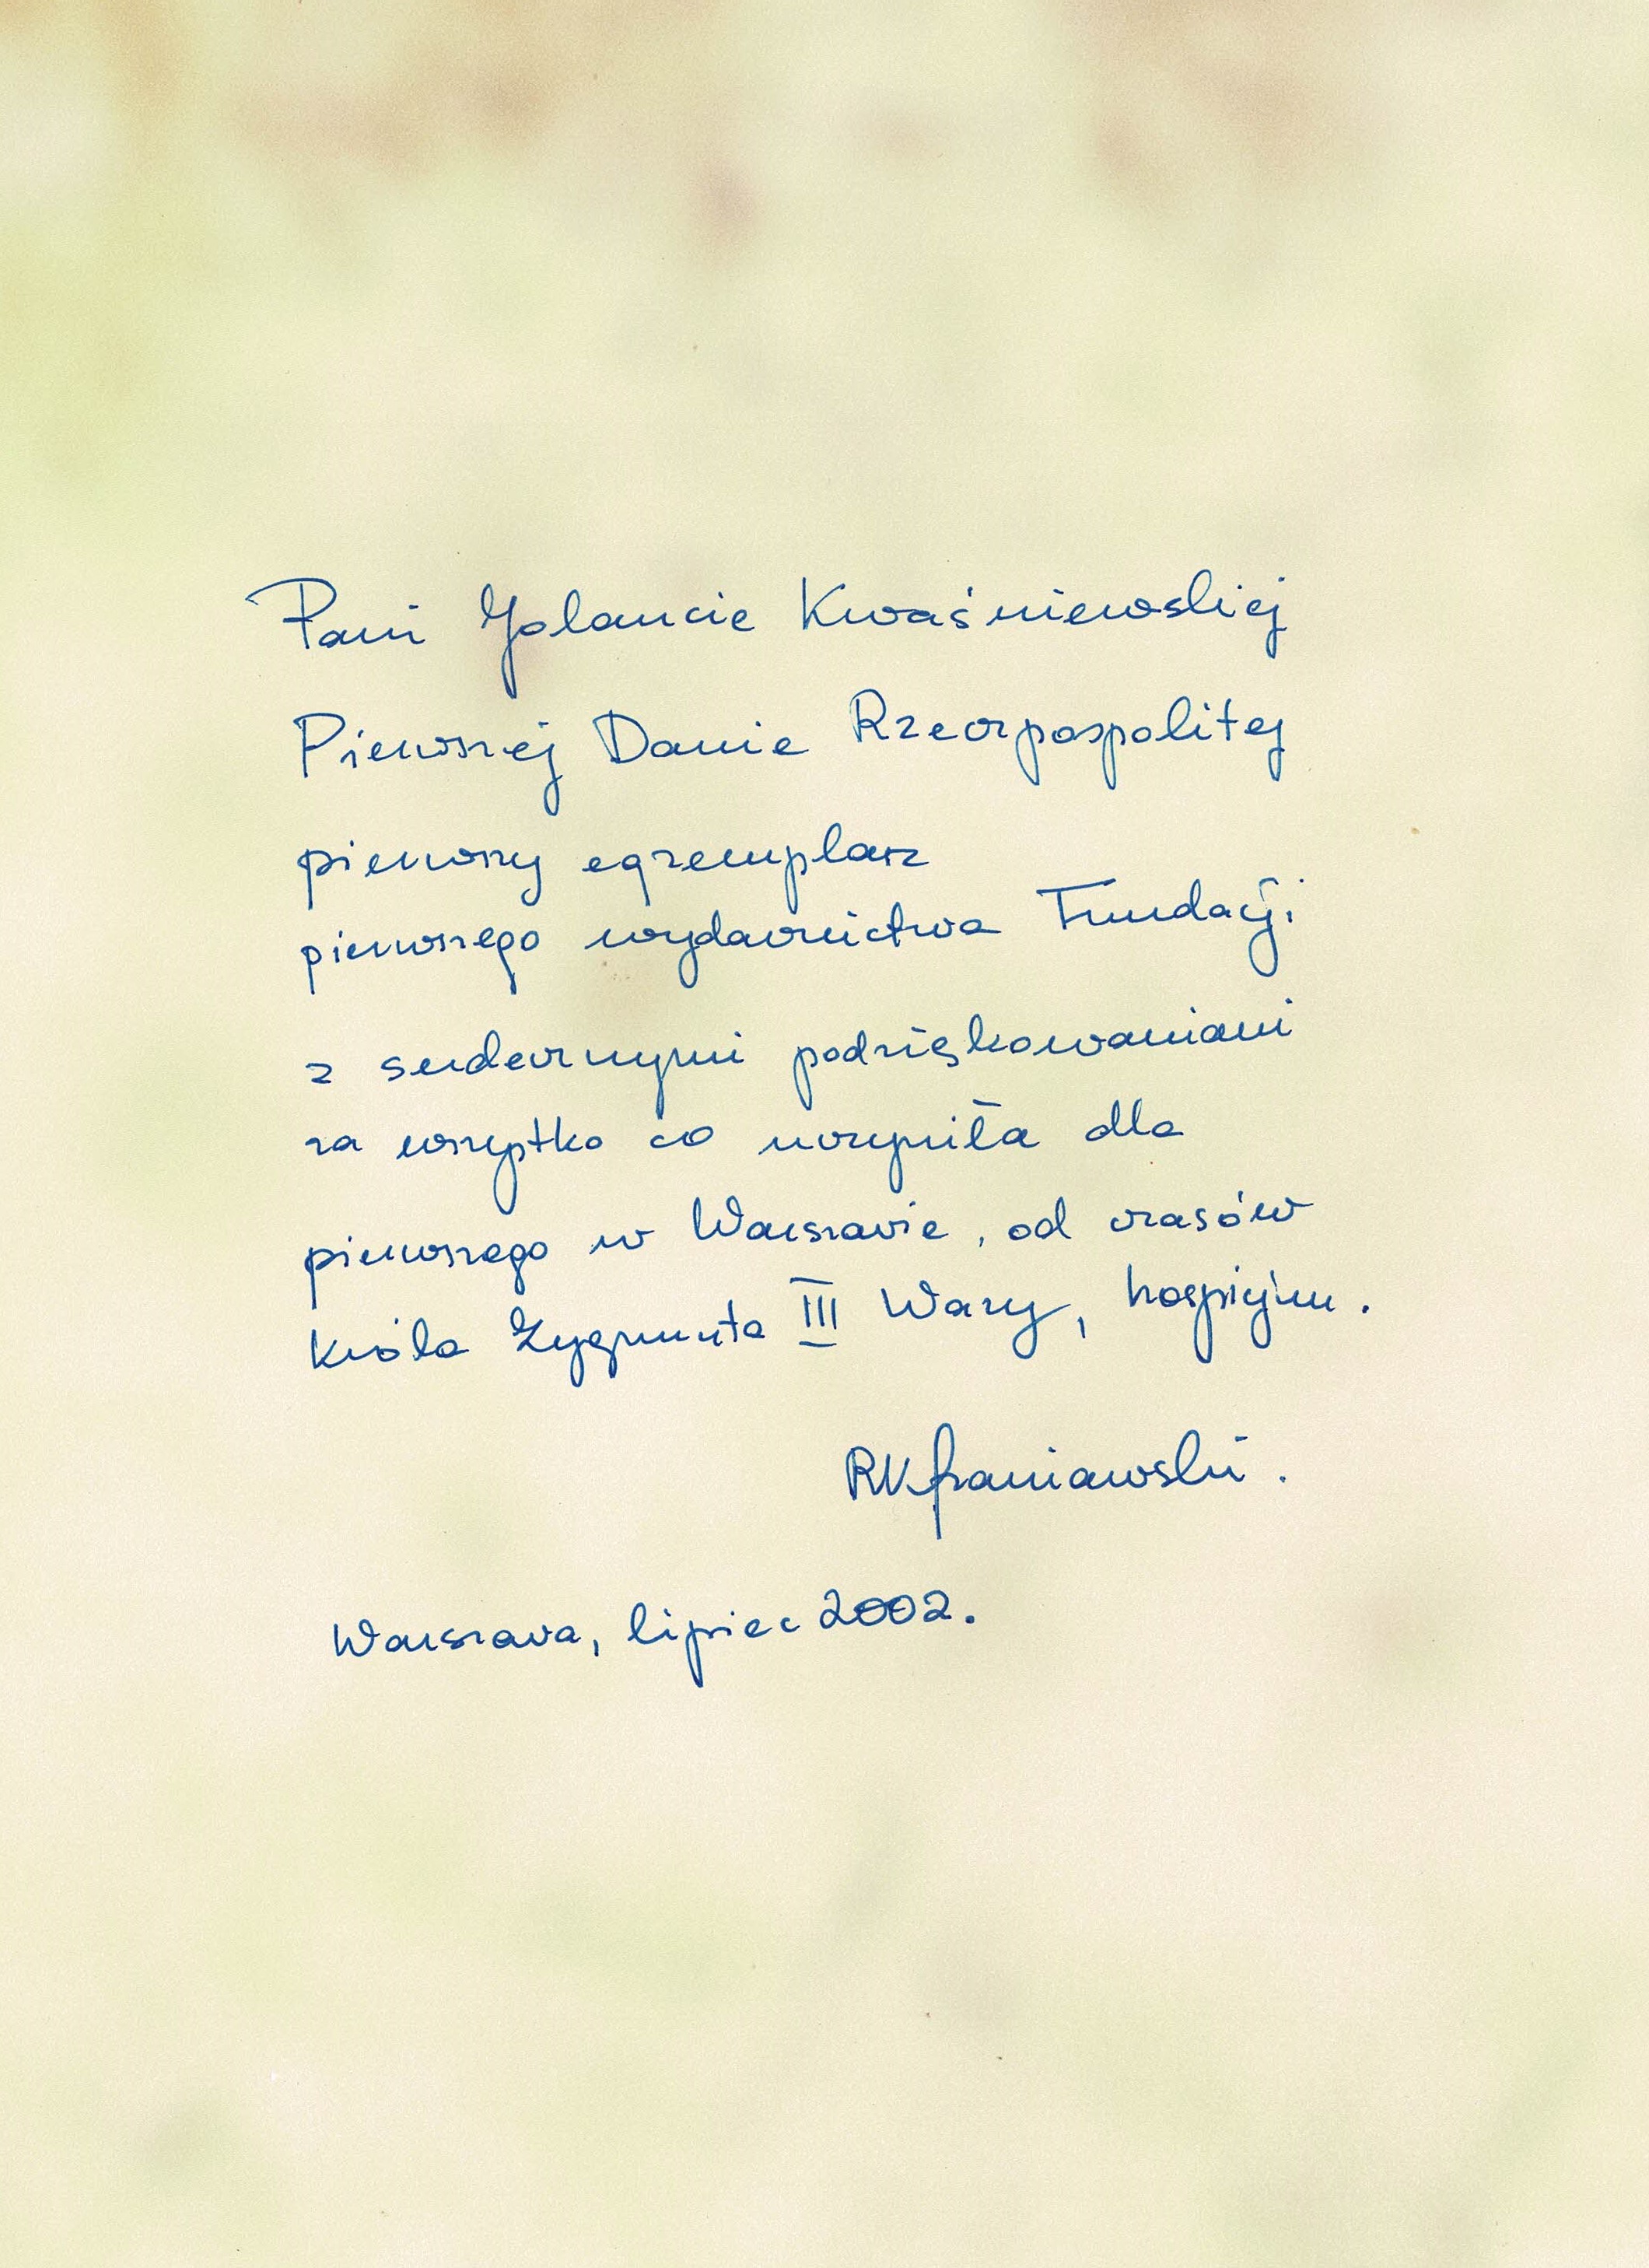 Pani Jolancie Kwaśniewskiej
Pierwszej Damie Rzeczpospolitej
pierwszy egzemplarz
pierwszego wydawnictwa Fundacji
z serdecznymi podziękowaniami
za wszystko co uczyniła dla
pierwszego w Warszawie, od czasów
Króla Zygmunta III Wazy, hospicjum.
Warszawa, lipiec 2002.